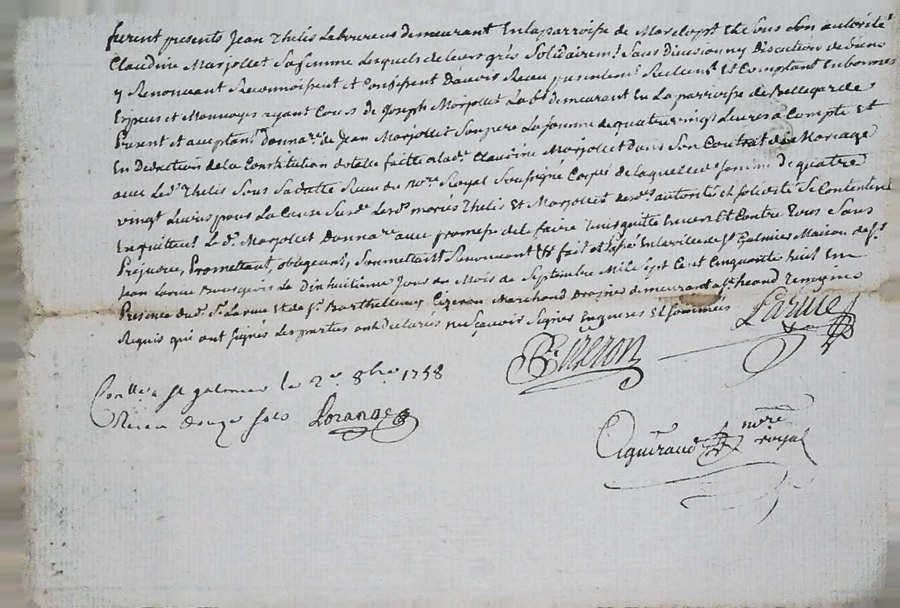 furent presents Jean Thelis Laboureur demeurant En la parroisse de Marclopt Et de Sous Son autorité
Claudine Marjollet Sa femme Lesquels de Leurs grés Solidairemt. Sans Division ny Discution de biens
y Renonçant Reconnoissent et Confessent D'avoir Receu presentemt. Reelemt. Et Comptant En bonnes
Especes et Monnoyes ayant Cours de Joseph Marjollet Labr. demeurant En La parroisse de Bellegarde
present et acceptant donnare. de Jean Marjollet Son pere La Somme de quatre vingt Livres à Compte Et
En Deduction de la Constitution dotalle faitte a lade. Claudine Marjollet Dans Son Contrat de Mariage
avec Led. Thelis Sous Sa datte Receu du nore. Royal Soussigné de laquelle de. Somme De quatre
vingt Livres pour La Cause Susde. Lesds. mariés Thelis Et Marjollet desds. autorité et solidité Se Contentent
En quittent Le d. Marjollet Donnare. avec promesse de le faire tenir quitte Envers Et Contre tous Sans
Prejudice, Promettant, obligeant, Soumettant Renonçant Et fait et passé En la ville de St. Galmier Maison de Sr.
Jean Larue Bourgeois Le Dixhuitieme Jour du Mois de Septembre Mile Sept Cent Cinquante huit En
Presence dud. Sr. Larue Et de Sr. Barthellemy Eizeron Marchand demeurant temoins
Requis qui ont Signés Les parties ont Declarés ne Sçavoir Signer Enquises Et Sommées
Larue
B. Eizeron
Conlle. a St galmier le 2e. 8bre 1758
Receu douze sols Lorange
Aguiraud nore. royal